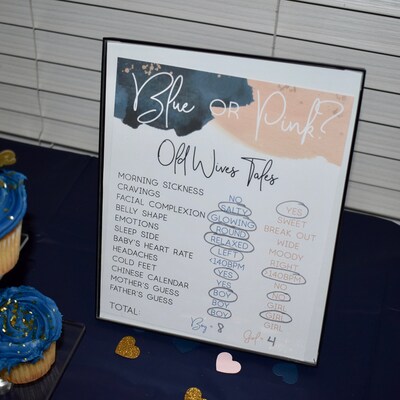 Blue OR Pink?
Old Wives Tales
MORNING SICKNESS NO YES
CRAVINGS SALTY SWEET
FACIAL COMPLEXION GLOWING BREAK OUT
BELLY SHAPE ROUND WIDE
EMOTIONS RELAXED MOODY
SLEEP SIDE LEFT RIGHT
BABY'S HEART RATE <140BPM >140BPM
HEADACHES YES NO
COLD FEET YES NO
CHINESE CALENDAR BOY GIRL
MOTHER'S GUESS BOY GIRL
FATHER'S GUESS BOY GIRL
TOTAL: Boy = 8 Girl = 4